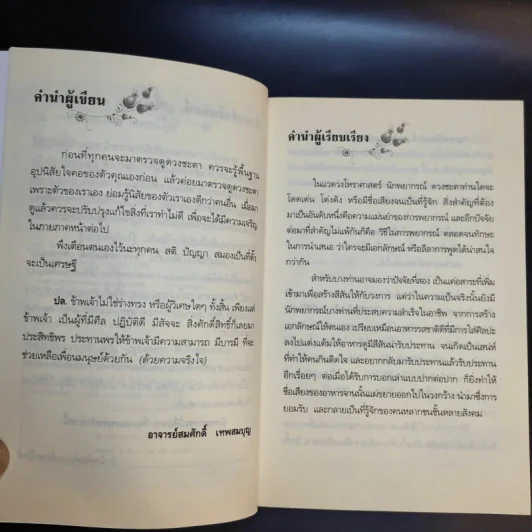 คำนำผู้เขียน
ก่อนที่ทุกคนจะมาตรวจดูดวงชะตา ควรจะรู้พื้นฐาน
อุปนิสัยใจคอของตัวคุณเองก่อน แล้วค่อยมาตรวจดูดวงชะตา
เพราะตัวของเราเอง ย่อมรู้นิสัยของตัวเราเองดีกว่าคนอื่น เมื่อ
ดูแล้วควรจะปรับปรุงแก้ไขสิ่งที่เราทำไม่ดี เพื่อจะได้มีความเจริญ
ในภายภาคหน้าต่อไป
พึงเตือนตนเองไว้นะทุกคน สติ ปัญญา สมองเป็นที่ตั้ง
จะเป็นเศรษฐี
ปล. ข้าพเจ้าไม่ใช่ร่างทรง หรือผู้วิเศษใดๆ ทั้งสิ้น เพียงแต่
ข้าพเจ้า เป็นผู้ที่มีศีล ปฏิบัติดี มีสัจจะ สิ่งศักดิ์สิทธิ์ก็เลยมา
ประสิทธิพร ประทานพรให้ข้าพเจ้ามีความสามารถ มีบารมี ที่จะ
ช่วยเหลือเพื่อนมนุษย์ด้วยกัน (ด้วยความจริงใจ)
อาจารย์สมศักดิ์ เทพสมบุญ
คำนำผู้เรียบเรียง
ในแวดวงโหราศาสตร์ นักพยากรณ์ ดวงชะตาท่านใดจะ
โดดเด่น โด่งดัง หรือมีชื่อเสียงจนเป็นที่รู้จัก สิ่งสำคัญที่ต้อง
มาเป็นอันดับหนึ่งคือความแม่นยำของการพยากรณ์ และอีกปัจจัย
ต่อมาที่สำคัญไม่แพ้กันก็คือ วิธีการพยากรณ์ ตลอดจนทักษะ
ในการนำเสนอ ว่าใครจะมีเอกลักษณ์ หรือลีลาการพูดได้น่าสนใจ
กว่ากัน
สำหรับบางท่านอาจมองว่าปัจจัยที่สอง เป็นแค่สาระที่เพิ่ม
เข้ามาเพื่อสร้างสีสันให้กับวงการ แต่ว่าในความเป็นจริงนั้นยังมี
นักพยากรณ์บางท่านที่ประสบความสำเร็จในอาชีพ จากการสร้าง
เอกลักษณ์ให้ตนเอง เปรียบเหมือนอาหารรสชาติดีที่มีการใส่ศิลปะ
ลงไปแต่งเติมให้อาหารดูมีสีสันน่ารับประทาน จนเกิดเป็นเสน่ห์
ที่ทำให้คนกินติดใจ และอยากกลับมารับประทานแล้วรับประทาน
อีกเรื่อยๆ ต่อเมื่อได้รับการบอกเล่าแบบปากต่อปาก ก็ยิ่งทำให้
ชื่อเสียงของอาหารจานนั้นแผ่ขยายออกไปในวงกว้าง นำมาซึ่งการ
ยอมรับ และกลายเป็นที่รู้จักของคนหลากชนชั้นหลายสังคม